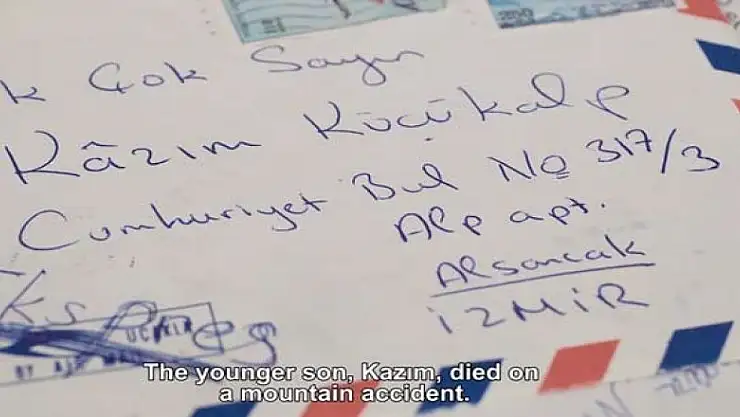 k Çok Sayın
Kâzım Küçükalp
Cumhuriyet Bul No 317/3
Alp apt.
Alsancak
İZMİR
UÇAK İLE
BY AIR MAIL
The younger son, Kazım, died on
a mountain accident.